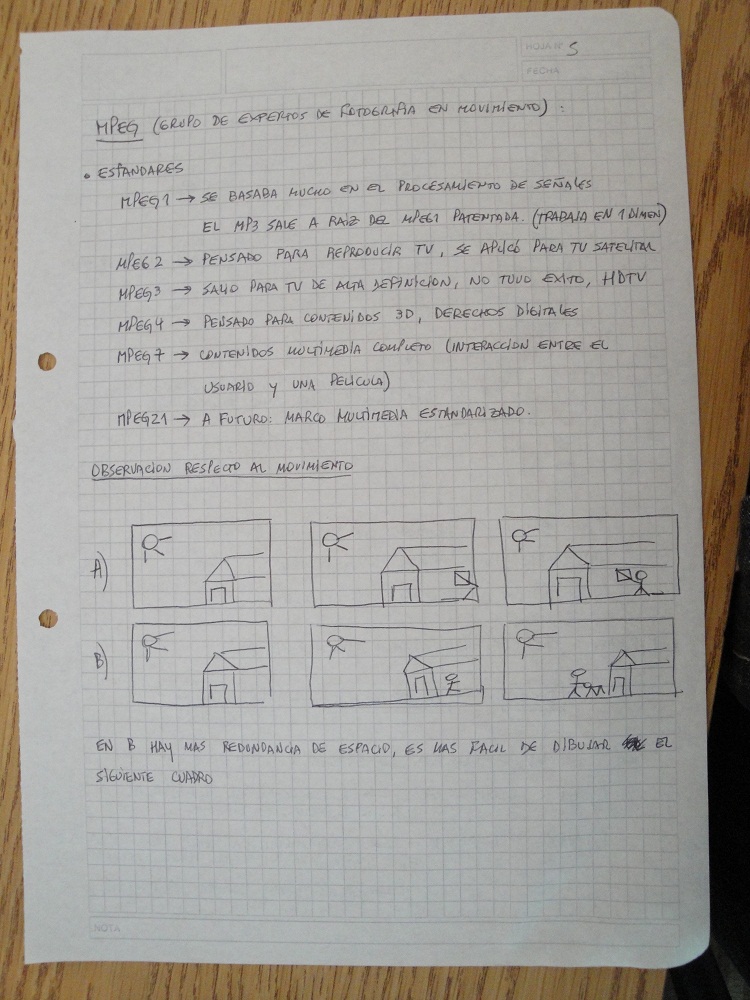 HOJA Nº 5
FECHA
MPEG (GRUPO DE EXPERTOS DE FOTOGRAFIA EN MOVIMIENTO) :
• ESTANDARES
MPEG1 → SE BASABA MUCHO EN EL PROCESAMIENTO DE SEÑALES
EL MP3 SALE A RAIZ DEL MPEG1 PATENTADA. (TRABAJA EN 1 DIMEN)
MPEG2 → PENSADO PARA REPRODUCIR TV, SE APLICÓ PARA TV SATELITAL
MPEG3 → SALIO PARA TV DE ALTA DEFINICION, NO TUVO EXITO, HDTV
MPEG4 → PENSADO PARA CONTENIDOS 3D, DERECHOS DIGITALES
MPEG7 → CONTENIDOS MULTIMEDIA COMPLETO (INTERACCION ENTRE EL
USUARIO Y UNA PELICULA)
MPEG21 → A FUTURO: MARCO MULTIMEDIA ESTANDARIZADO.
OBSERVACION RESPECTO AL MOVIMIENTO
A)
B)
EN B HAY MAS REDONDANCIA DE ESPACIO, ES MAS FACIL DE DIBUJAR EL
SIGUIENTE CUADRO
NOTA